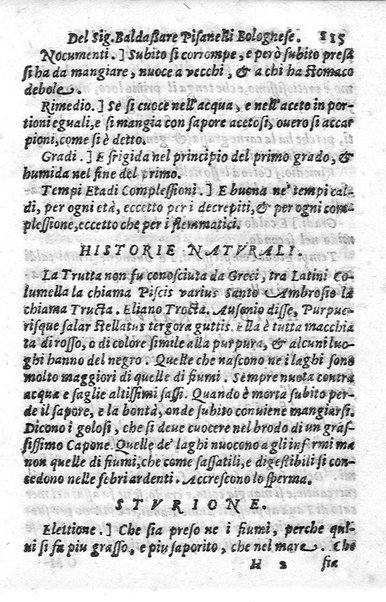 Del Sig. Baldassare Pisanelli Bolognese. 115
Nocumenti. ] Subito si corrompe, e però subito presa
si ha da mangiare, nuoce a vecchi, & a chi ha stomaco
debole.
Rimedio. ] Se si cuoce nell'acqua, e nell'aceto in por-
tioni eguali, e si mangia con sapore acetosi, overo si accar
pioni, come si è detto.
Gradi. ] E frigida nel principio del primo grado, &
humida nel fine del primo.
Tempi Etadi Complessioni. ] E buona ne' tempi cal-
di, per ogni età, eccetto per i decrepiti, & per ogni com-
plessione, eccetto che per i flemmatici.
HISTORIE NATVRALI.
La Trutta non fu conosciuta da Greci, tra Latini Co-
lumella la chiama Piscis varius Santo Ambrosio la
chiama Tructa. Eliano Trocta. Ausonio disse, Purpue-
risque salar Stellatus tergora guttis. ella è tutta macchia
ta di rosso, o di colore simile alla purpura, & alcuni luo-
ghi hanno del negro. Quelle che nascono ne i laghi sono
molto maggiori di quelle di fiumi. Sempre nuota contra
acqua e saglie altissimi sassi. Quando è morta subito per-
de il sapore, e la bontà, onde subito conviene mangiarsi.
Dicono i golosi, che si deve cuocere nel brodo di un gras-
sissimo Capone. Quelle de' laghi nuocono a gli infirmi ma
non quelle di fiumi, che come sassatili, e digestibili si con-
cedono nelle febri ardenti. Accrescono lo sperma.
STVRIONE.
Elettione. ] Che sia preso ne i fiumi, perche qui-
vi si fa piu grasso, e piu saporito, che nel mare. Che
H 2 sia